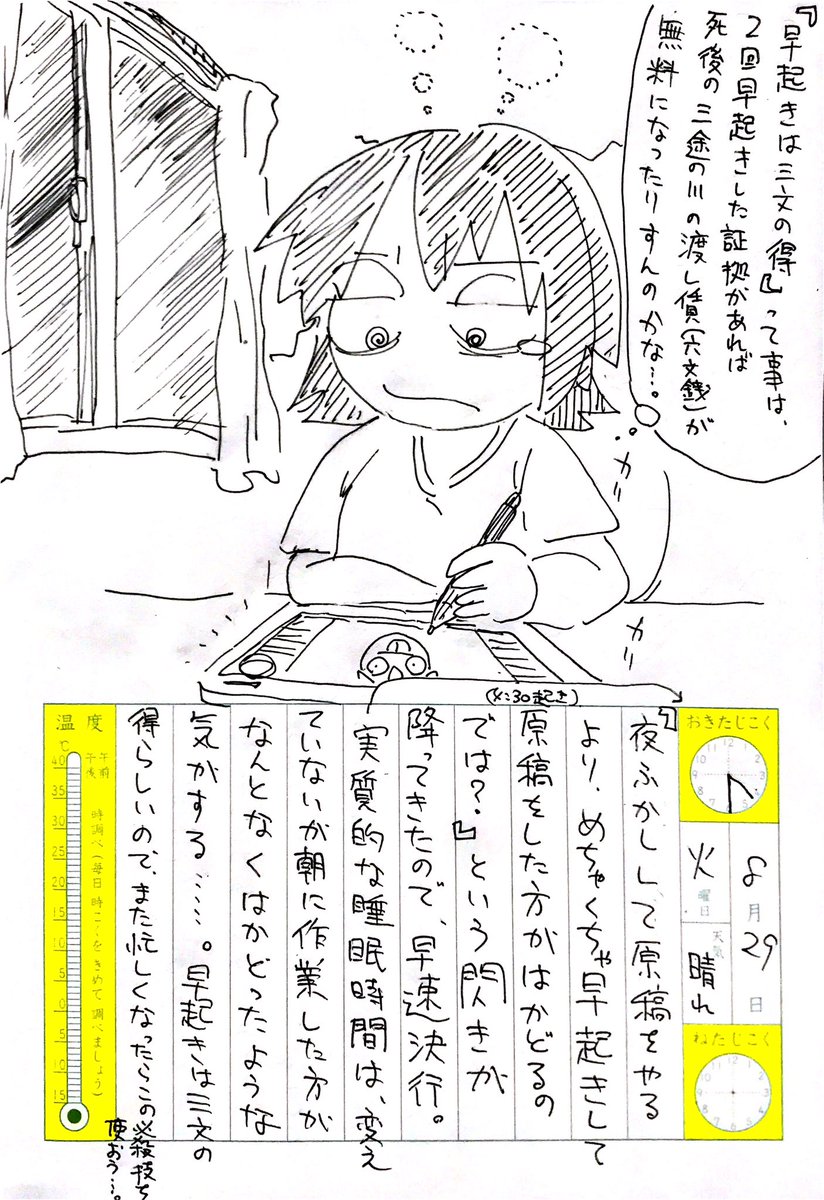 『早起きは三文の得』って事は、
2回早起きした証拠があれば
死後の三途の川の渡し賃(六文銭)が
無料になったりすんのかな…。
カリ
カリ
(4:30起き)
おきたじこく
8月29日
火曜日
天気
晴れ
ねたじこく
『夜ふかしして原稿をやる
より、めちゃくちゃ早起きして
原稿をした方がはかどるの
では?』という閃きが
降ってきたので、早速決行。
実質的な睡眠時間は、変え
ていないが朝に作業した方が
なんとなくはかどったような
気がする……。早起きは三文の
得らしいので、また忙しくなったらこの必殺技を
使おう…。
温度
℃
午前
午後
時調べ(毎日 時こくをきめて調べましょう)
40
35
30
25
20
15
10
5
0
5
10
15